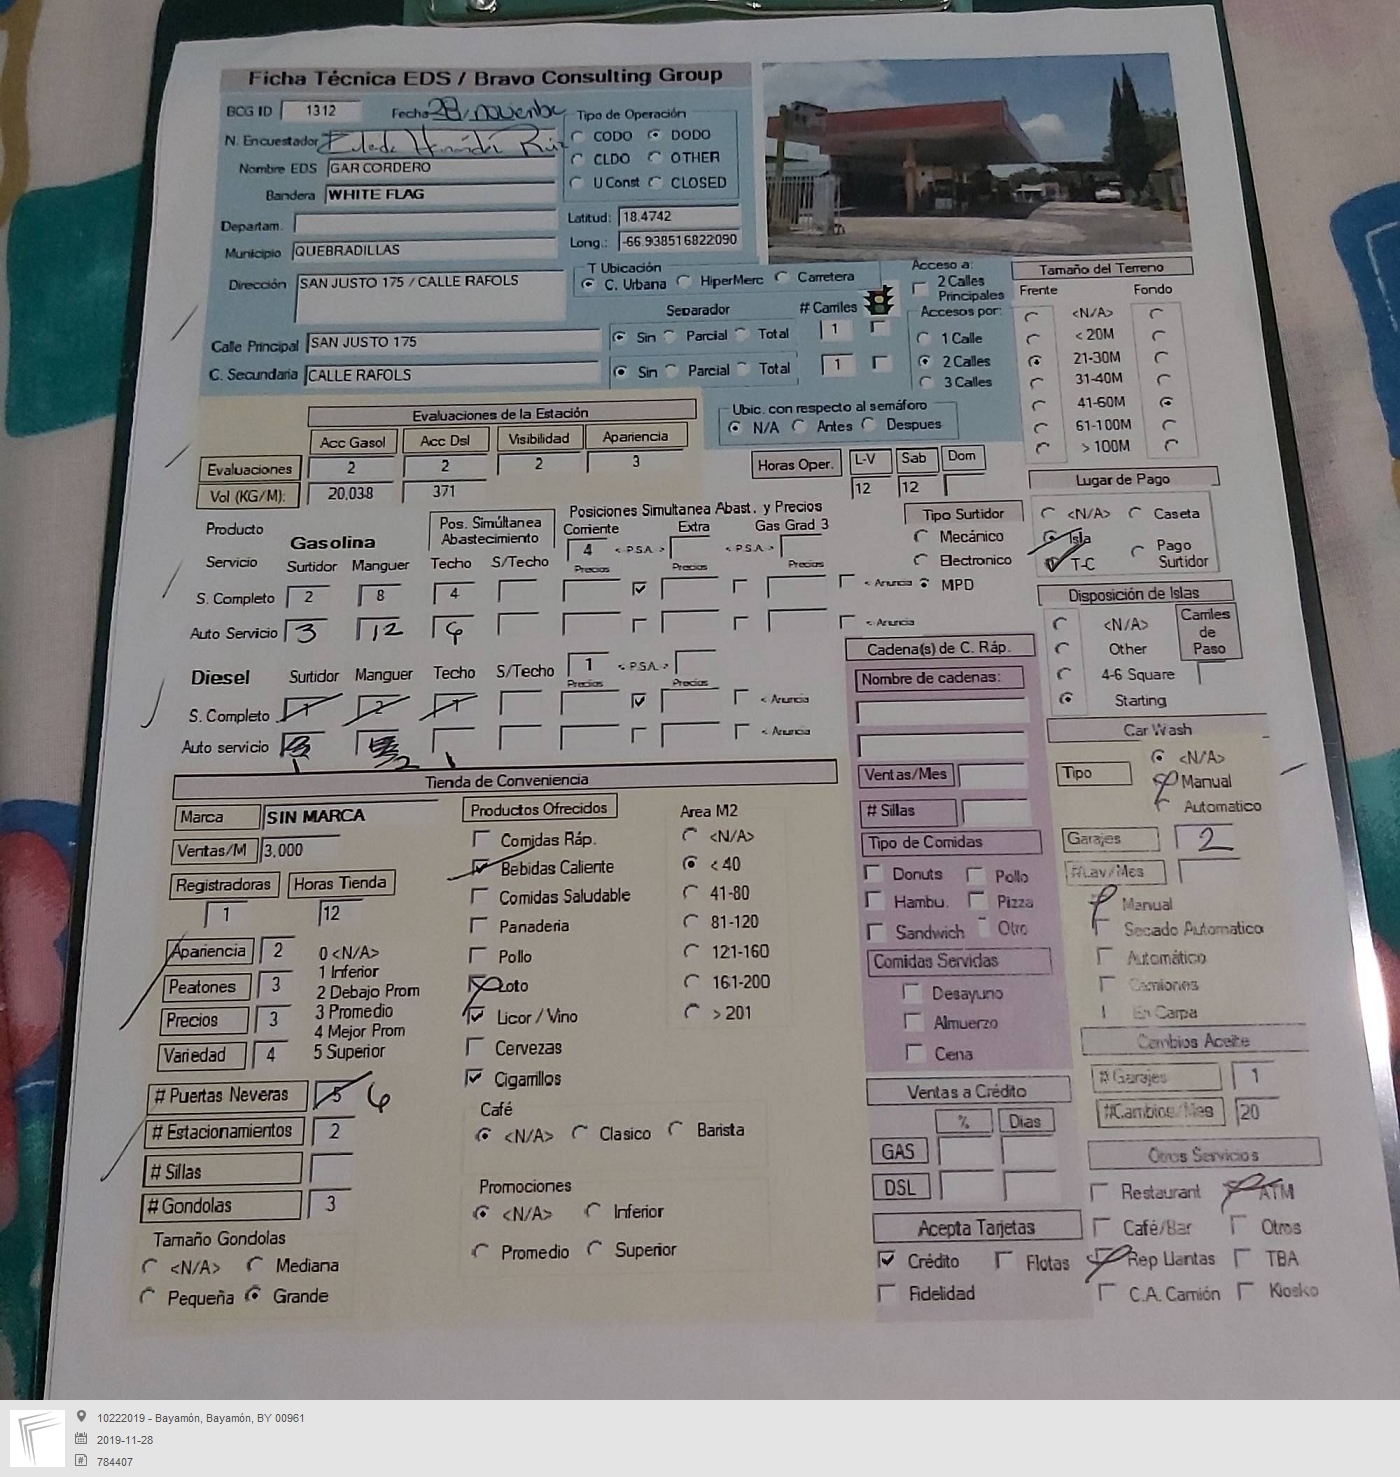 Ficha Técnica EDS / Bravo Consulting Group
BCG ID 1312 Fecha 28/noviembre
N. Encuestador
Nombre EDS GAR CORDERO
Bandera WHITE FLAG
Departam.
Municipio QUEBRADILLAS
Tipo de Operación
CODO DODO
CLDO OTHER
U Const CLOSED
Latitud: 18.4742
Long.: -66.938516822090
Dirección SAN JUSTO 175 / CALLE RAFOLS
T Ubicación
C. Urbana HiperMerc Carretera
Separador # Carriles
Calle Principal SAN JUSTO 175 Sin Parcial Total 1
C. Secundaria CALLE RAFOLS Sin Parcial Total 1
Acceso a:
2 Calles
Principales
Accesos por:
1 Calle
2 Calles
3 Calles
Tamaño del Terreno
Frente Fondo
<N/A>
< 20M
21-30M
31-40M
41-60M
61-100M
> 100M
Evaluaciones de la Estación
Acc Gasol Acc Dsl Visibilidad Apariencia
Evaluaciones 2 2 2 3
Vol (KG/M): 20,038 371
Ubic. con respecto al semáforo
N/A Antes Despues
Horas Oper. L-V Sab Dom
12 12
Lugar de Pago
<N/A> Caseta
Isla Pago
T-C Surtidor
Producto Gasolina
Pos. Simúltanea
Abastecimiento
Posiciones Simultanea Abast. y Precios
Corriente Extra Gas Grad 3
4 < P.S.A. > < P.S.A. >
Servicio Surtidor Manguer Techo S/Techo Precios Precios Precios
S. Completo 2 8 4 < Anuncia
Auto Servicio 3 12 6 < Anuncia
Tipo Surtidor
Mecánico
Electronico
MPD
Disposición de Islas
<N/A>
Other
4-6 Square
Starting
Carriles
de
Paso
Diesel Surtidor Manguer Techo S/Techo 1 < P.S.A. >
Precios Precios
S. Completo 1 2 1 < Anuncia
Auto servicio 1 2 1 < Anuncia
Tienda de Conveniencia
Marca SIN MARCA
Ventas/M 3,000
Registradoras Horas Tienda
1 12
Apariencia 2
Peatones 3
Precios 3
Variedad 4
0 <N/A>
1 Inferior
2 Debajo Prom
3 Promedio
4 Mejor Prom
5 Superior
# Puertas Neveras 5 6
# Estacionamientos 2
# Sillas
# Gondolas 3
Tamaño Gondolas
<N/A> Mediana
Pequeña Grande
Productos Ofrecidos
Comidas Ráp.
Bebidas Caliente
Comidas Saludable
Panaderia
Pollo
Loto
Licor / Vino
Cervezas
Cigarrillos
Café
<N/A> Clasico Barista
Promociones
<N/A> Inferior
Promedio Superior
Area M2
<N/A>
< 40
41-80
81-120
121-160
161-200
> 201
Cadena(s) de C. Ráp.
Nombre de cadenas:
Ventas/Mes
# Sillas
Tipo de Comidas
Donuts Pollo
Hambu. Pizza
Sandwich Otro
Comidas Servidas
Desayuno
Almuerzo
Cena
Ventas a Crédito
% Dias
GAS
DSL
Acepta Tarjetas
Crédito Flotas
Fidelidad
Car Wash
Tipo <N/A>
Manual
Automatico
Garajes 2
#Lav/Mes
Manual
Secado Automatico
Automático
Camiones
En Carpa
Cambios Aceite
# Garajes 1
#Cambios/Mes 20
Otros Servicios
Restaurant ATM
Café/Bar Otros
Rep Llantas TBA
C.A. Camión Kiosko
10222019 - Bayamón, Bayamón, BY 00961
2019-11-28
784407